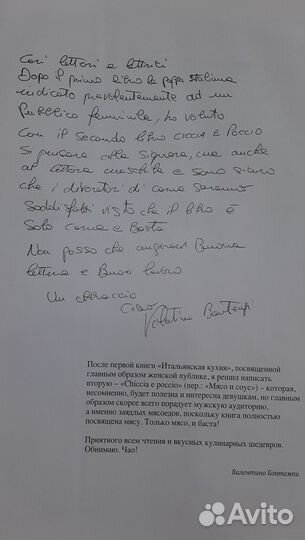 Cari lettori e lettrici
Dopo il primo libro la pappa italiana
indicato prevalentemente ad un
Pubblico feminile, ho voluto
Con il secondo libro CICCIA E POCCIO
Si pensare alla Signora, ma anche
al lettore maschile e sono sicuro
che i divoratori di carne saranno
Soddisfatti visto che il libro è
Solo carne e Basta
Non posso che augurarvi Buona
lettura e Buon lavoro
Un abbraccio
Ciao
Valentino Bontempi
После первой книги «Итальянская кухня», посвященной
главным образом женской публике, я решил написать
вторую – «Chiccia e poccio» (пер.: «Мясо и соус») – которая,
несомненно, будет полезна и интересна девушкам, но главным
образом скорее всего порадует мужскую аудиторию,
а именно заядлых мясоедов, поскольку книга полностью
посвящена мясу. Только мясо, и баста!
Приятного всем чтения и вкусных кулинарных шедевров.
Обнимаю. Чао!
Валентино Бонтемпи
Avito